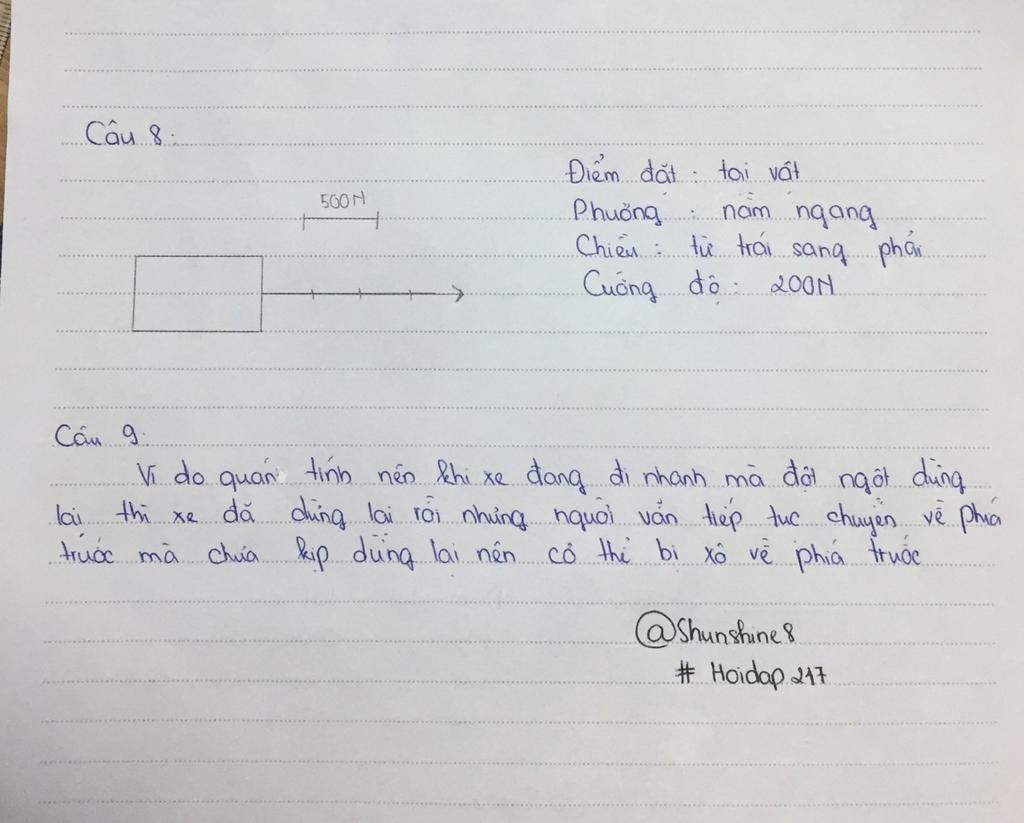 Câu 8:
500N
Điểm đặt : tại vật
Phương : nằm ngang
Chiều : từ trái sang phải
Cường độ : 200N
Câu 9:
Vì do quán tính nên khi xe đang đi nhanh mà đột ngột dừng
lại thì xe đã dừng lại rồi nhưng người vẫn tiếp tục chuyển về phía
trước mà chưa kịp dừng lại nên có thể bị xô về phía trước
@Shunshine8
# Hoidap247